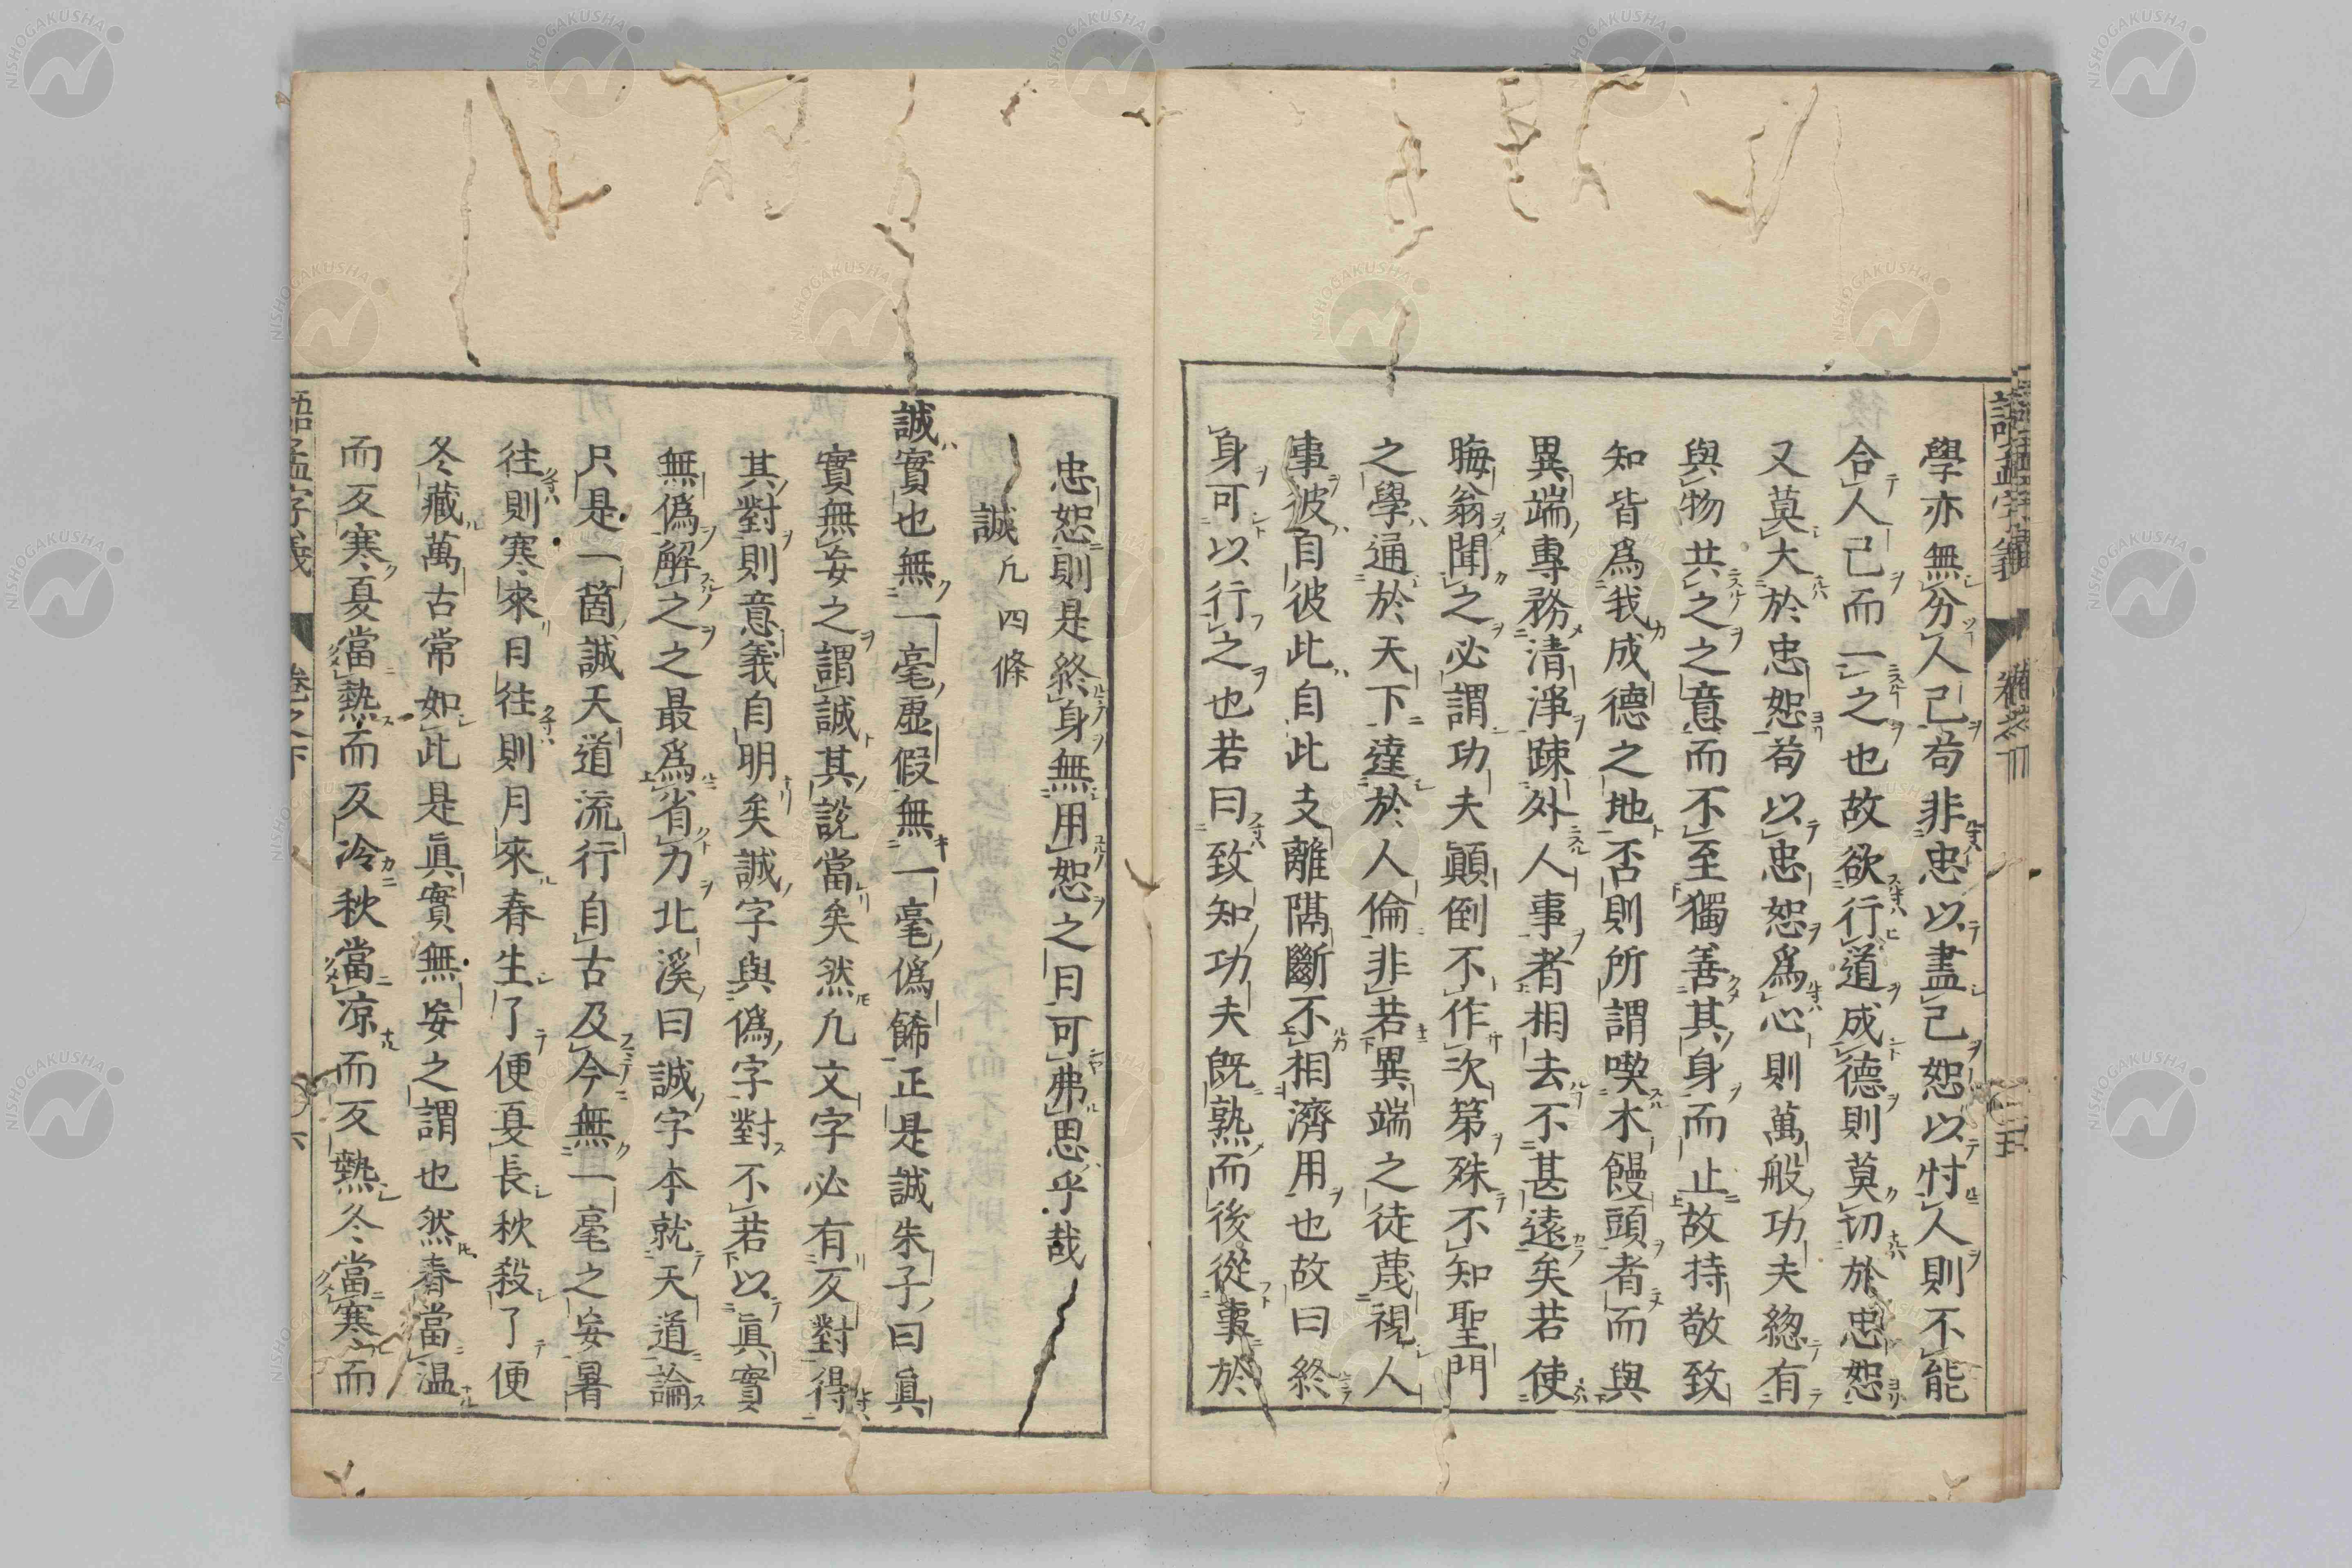 學亦無分人己苟非忠以盡己恕以忖人則不能
合人己而一之也故欲行道成德則莫切於忠恕
又莫大於忠恕苟以忠恕爲心則萬般功夫總有
與物共之之意而不至獨善其身而止故持敬致
知皆爲我成德之地否則所謂喫木饅頭者而與
異端專務清淨疎外人事者相去不甚遠矣若使
晦翁聞之必謂功夫顚倒不作次第殊不知聖門
之學通於天下達於人倫非若異端之徒蔑視人
事彼自彼此自此支離隔斷不相濟用也故曰終
身可以行之也若曰致知功夫既熟而後從事於
忠恕則是終身無用恕之日可弗思乎哉
誠 凡四條
誠實也無一毫虛假無一毫僞餙正是誠朱子曰眞
實無妄之謂誠其說當矣然凡文字必有反對得
其對則意義自明矣誠字與僞字對不若以眞實
無僞解之之最爲省力北溪曰誠字本就天道論
只是一箇誠天道流行自古及今無一毫之妄暑
往則寒來日往則月來春生了便夏長秋殺了便
冬藏萬古常如此是眞實無妄之謂也然春當温
而反寒夏當熱而反冷秋當凉而反熱冬當寒而
語孟字義 卷之下
NISHOGAKUSHA